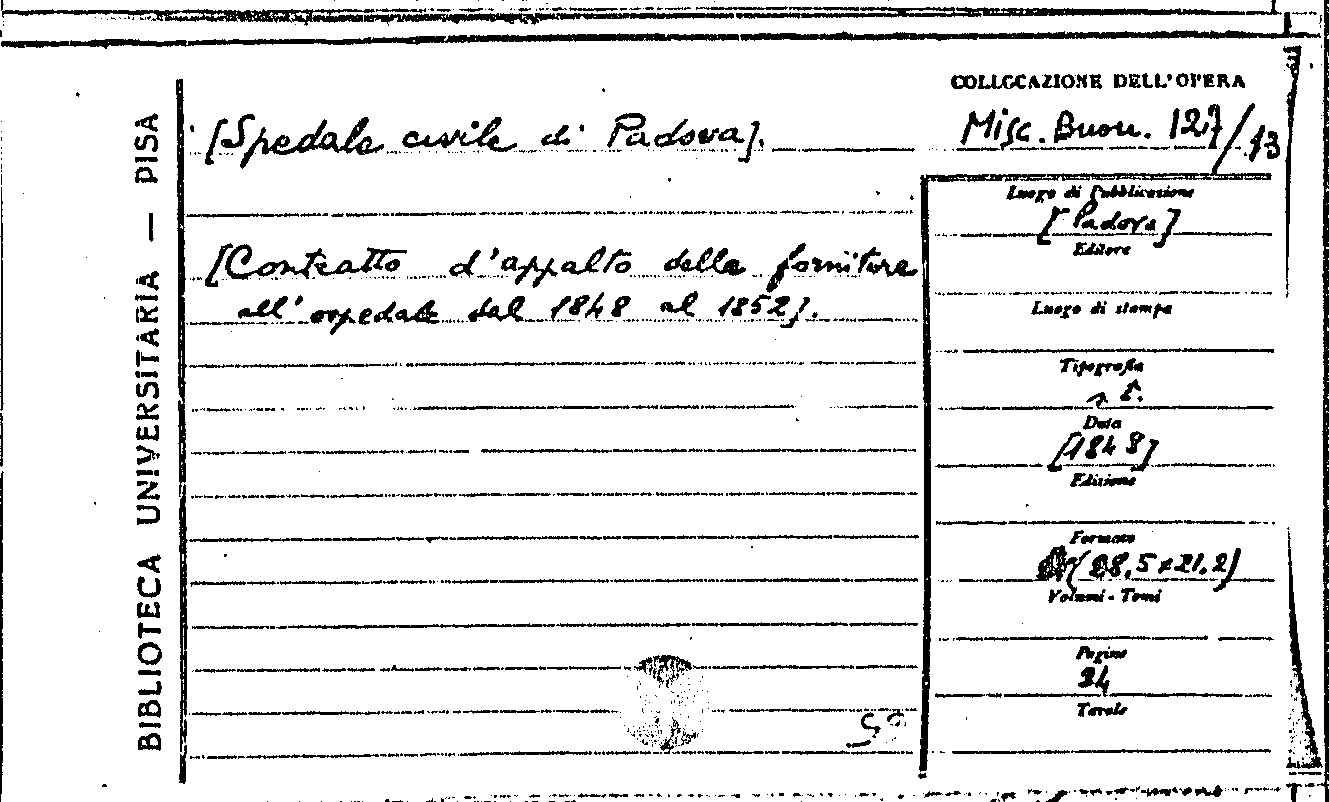 BIBLIOTECA UNIVERSITARIA — PISA
[Spedale civile di Padova].
[Contratto d'appalto delle forniture
all'ospedale dal 1848 al 1852].
COLLOCAZIONE DELL'OPERA
Misc. Buon. 127/13
Luogo di Pubblicazione
[Padova]
Editore
Luogo di stampa
Tipografia
s. t.
Data
[1848]
Edizione
Formato
(28,5x21,2)
Volumi - Tomi
Pagine
24
Tavole